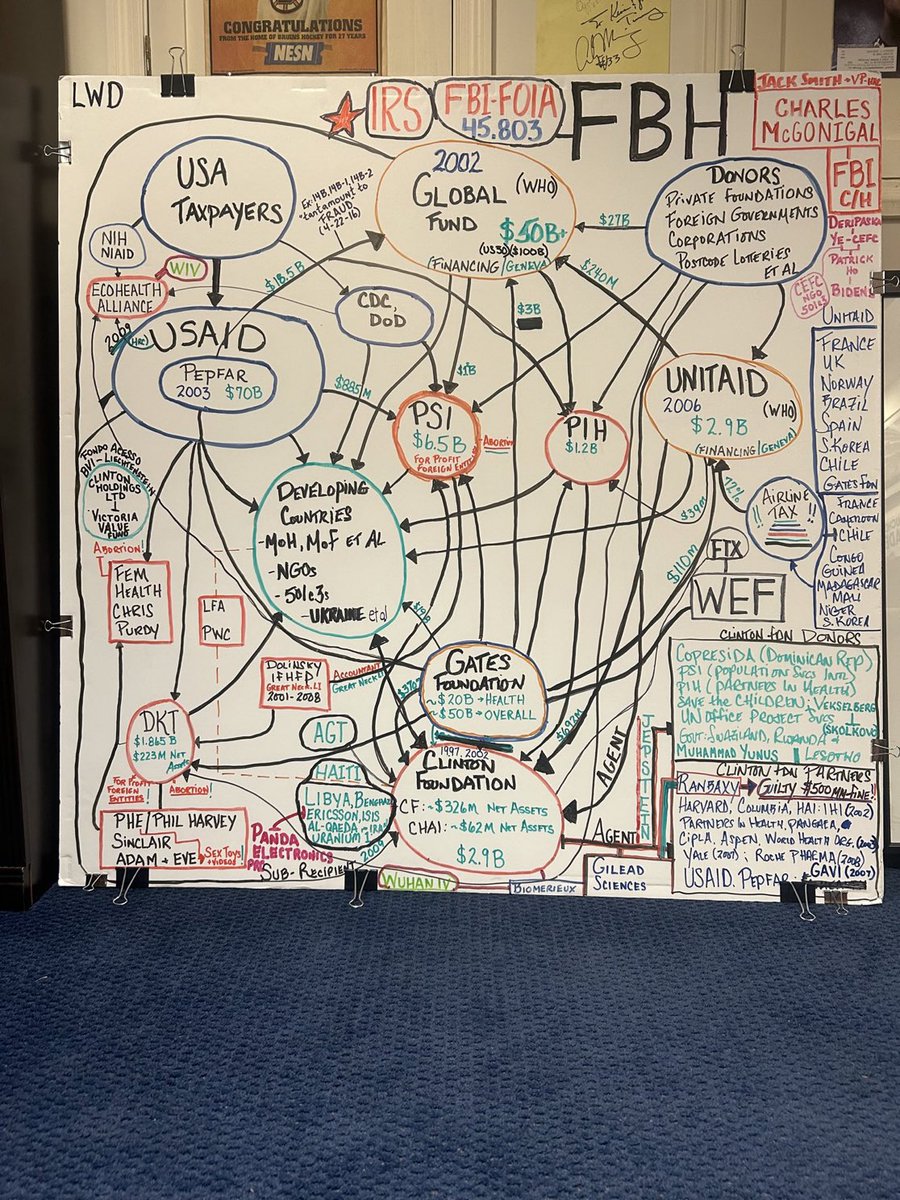 CONGRATULATIONS
FROM THE HOME OF BRUINS HOCKEY FOR 27 YEARS
NESN
#33
LWD
IRS
FBI-FOIA
45.803
FBH
JACK SMITH - VP-HRC
CHARLES
McGONIGAL
FBI
C/H
DERIPASKA
YE-CEFC
PATRICK
HO
BIDENS
CEFC
NGO
501c3
USA
TAXPAYERS
Ex: 14B, 14B-1, 14B-2
"tantamount to
FRAUD"
(4-22-16)
2002
GLOBAL (WHO)
FUND
$50B+
(US30)($100B)
(FINANCING/GENEVA)
DONORS
PRIVATE FOUNDATIONS
FOREIGN GOVERNMENTS
CORPORATIONS
POSTCODE LOTTERIES
ET AL
$27B
$240M
$18.5B
$3B
NIH
NIAID
WIV
ECOHEALTH
ALLIANCE
2009
(HRC)
USAID
PEPFAR
2003 $70B
CDC,
DoD
$885M
$1B
PSI
$6.5B
FOR PROFIT
FOREIGN ENTITIES
-ABORTION
PIH
$1.2B
UNITAID
2006 (WHO)
$2.9B
(FINANCING/GENEVA)
UNITAID
FRANCE
UK
NORWAY
BRAZIL
SPAIN
S. KOREA
CHILE
GATES FDN
FRANCE
CAMEROON
CHILE
CONGO
GUINEA
MADAGASCAR
MALI
NIGER
S. KOREA
AIRLINE
TAX
!! !!
72%
$39M
$110M
FTX
WEF
FONDO ACESO
BVI-LIECHTENSTEIN
CLINTON
HOLDINGS
LTD
VICTORIA
VALUE
FUND
ABORTION!
FEM
HEALTH
CHRIS
PURDY
DEVELOPING
COUNTRIES
-MoH, MoF ET AL
-NGOs
-501c3s
-UKRAINE et al
LFA
PWC
DOLINSKY
IFHFP
GREAT NECK, LI
2001-2008
ACCOUNTANT
GREAT NECK LI
$370M
GATES
FOUNDATION
~$20B→HEALTH
~$50B→OVERALL
$692M
AGENT
JEPSTEIN
CLINTON FDN DONORS
COPRESIDA (DOMINICAN REP)
PSI (POPULATION SVCS INTL)
PIH (PARTNERS IN HEALTH)
SAVE THE CHILDREN; VEKSELBERG
UN OFFICE PROJECT SVCS
SKOLKOVO
GOVT: SWAZILAND, RWANDA &
MUHAMMAD YUNUS LESOTHO
DKT
$1.865 B
$223M NET
ASSETS
FOR PROFIT
FOREIGN
ENTITIES!
ABORTION!
AGT
HAITI
LIBYA, BENGHAZI
ERICSSON, ISIS
AL-QAEDA - IRAN
URANIUM 1
2009
PANDA
ELECTRONICS
PRC
1997, 2002
CLINTON
FOUNDATION
CF: ~$326M NET ASSETS
CHAI: ~$62M NET ASSETS
$2.9B
AGENT
CLINTON FDN PARTNERS
RANBAXY → GUILTY $500MM FINE!!
HARVARD, COLUMBIA, HAI: IHI (2002)
PARTNERS IN HEALTH, PANGAEA,
CIPLA, ASPEN, WORLD HEALTH ORG, (2003)
YALE (2007); ROCHE PHARMA (2008)
USAID. PEPFAR. GAVI (2007)
PHE/PHIL HARVEY
SINCLAIR
ADAM + EVE
SEX TOYS!
+ VIDEOS!
SUB-RECIPIENT
WUHAN IV
BIOMERIEUX
GILEAD
SCIENCES